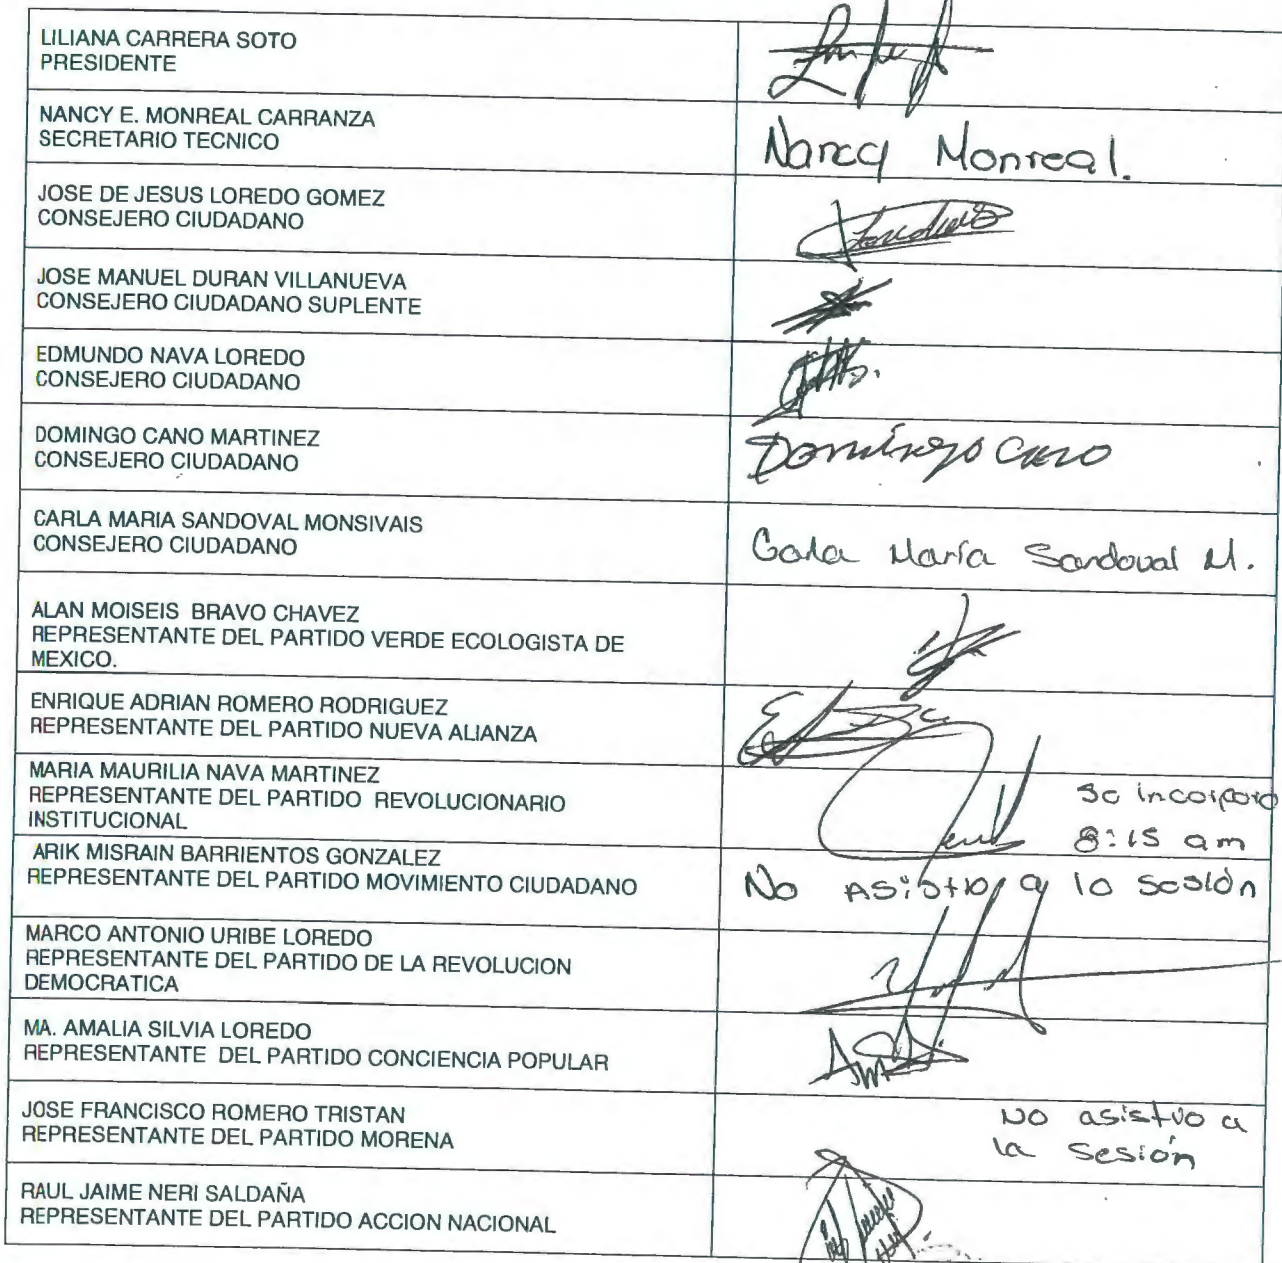 LILIANA CARRERA SOTO
PRESIDENTE
NANCY E. MONREAL CARRANZA
SECRETARIO TECNICO
Nancy Monreal.
JOSE DE JESUS LOREDO GOMEZ
CONSEJERO CIUDADANO
JOSE MANUEL DURAN VILLANUEVA
CONSEJERO CIUDADANO SUPLENTE
EDMUNDO NAVA LOREDO
CONSEJERO CIUDADANO
DOMINGO CANO MARTINEZ
CONSEJERO CIUDADANO
Domingo Cano
CARLA MARIA SANDOVAL MONSIVAIS
CONSEJERO CIUDADANO
Carla María Sandoval M.
ALAN MOISEIS BRAVO CHAVEZ
REPRESENTANTE DEL PARTIDO VERDE ECOLOGISTA DE
MEXICO.
ENRIQUE ADRIAN ROMERO RODRIGUEZ
REPRESENTANTE DEL PARTIDO NUEVA ALIANZA
MARIA MAURILIA NAVA MARTINEZ
REPRESENTANTE DEL PARTIDO REVOLUCIONARIO
INSTITUCIONAL
Se incorporo
8:15 am
ARIK MISRAIN BARRIENTOS GONZALEZ
REPRESENTANTE DEL PARTIDO MOVIMIENTO CIUDADANO
No Asistio a la sesión
MARCO ANTONIO URIBE LOREDO
REPRESENTANTE DEL PARTIDO DE LA REVOLUCION
DEMOCRATICA
MA. AMALIA SILVIA LOREDO
REPRESENTANTE DEL PARTIDO CONCIENCIA POPULAR
JOSE FRANCISCO ROMERO TRISTAN
REPRESENTANTE DEL PARTIDO MORENA
No asistio a
la sesión
RAUL JAIME NERI SALDAÑA
REPRESENTANTE DEL PARTIDO ACCION NACIONAL